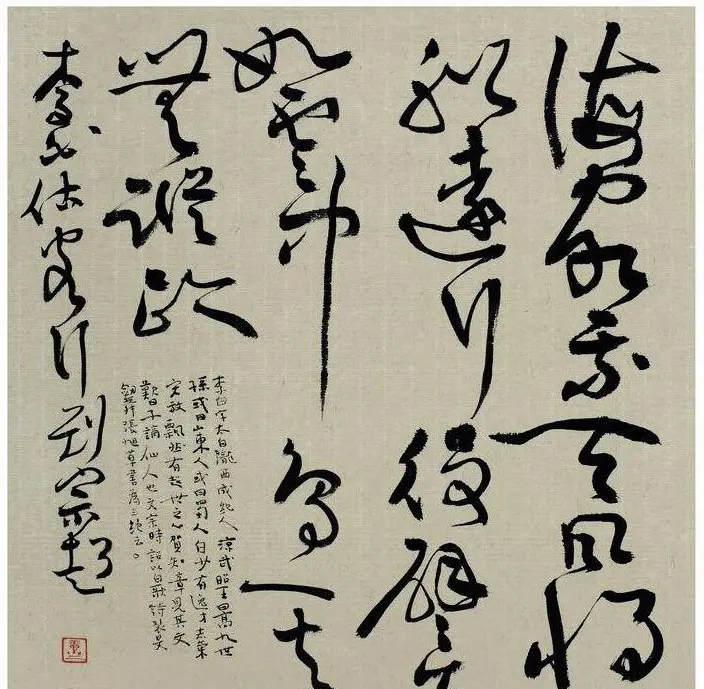 海客乘天風將
船遠行役譬
如雲中鳥一去
無蹤跡
李白字太白隴西成紀人涼武昭王暠九世
孫或曰山東人或曰蜀人白少有逸才志氣
宏放飄然有超世之心賀知章見其文
歎曰子謫仙人也文宗時詔以白歌詩裴旻
劍舞張旭草書為三絕云。
李白估客行劉宗超